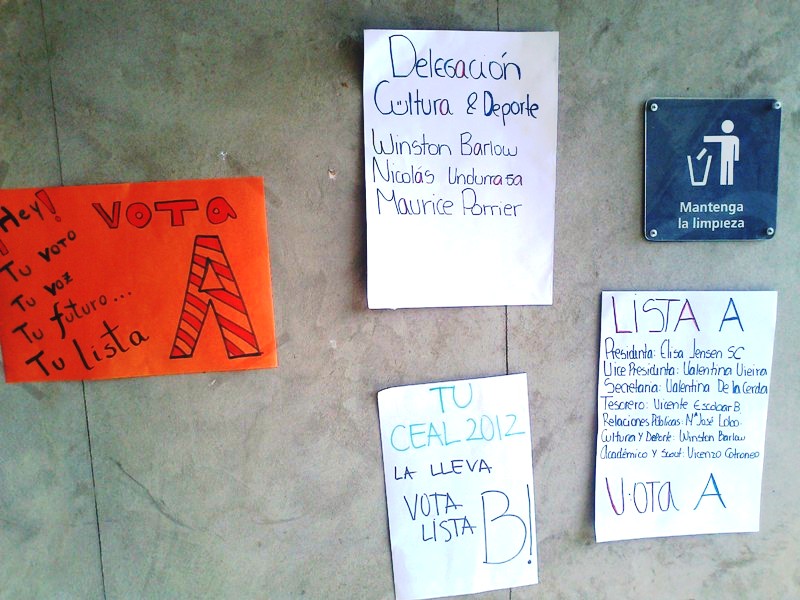 ¡Hey! VOTA
Tu voto
Tu voz
Tu futuro...
Tu lista
A
Delegación
Cultura & Deporte
Winston Barlow
Nicolás Undurraga
Maurice Porrier
Mantenga
la limpieza
TU
CEAL 2012
LA LLEVA
VOTA
LISTA B!
LISTA A
Presidinta: Elisa Jensen SC
Vice Presidinta: Valentina Vieira
Secretaria: Valentina De la Cerda
Tesorero: Vicente Escobar B
Relaciones Públicas: Mª José Lobo
Cultura y Deporte: Winston Barlow
Académico y Scout: Vicenzo Cotroneo
VOTA A